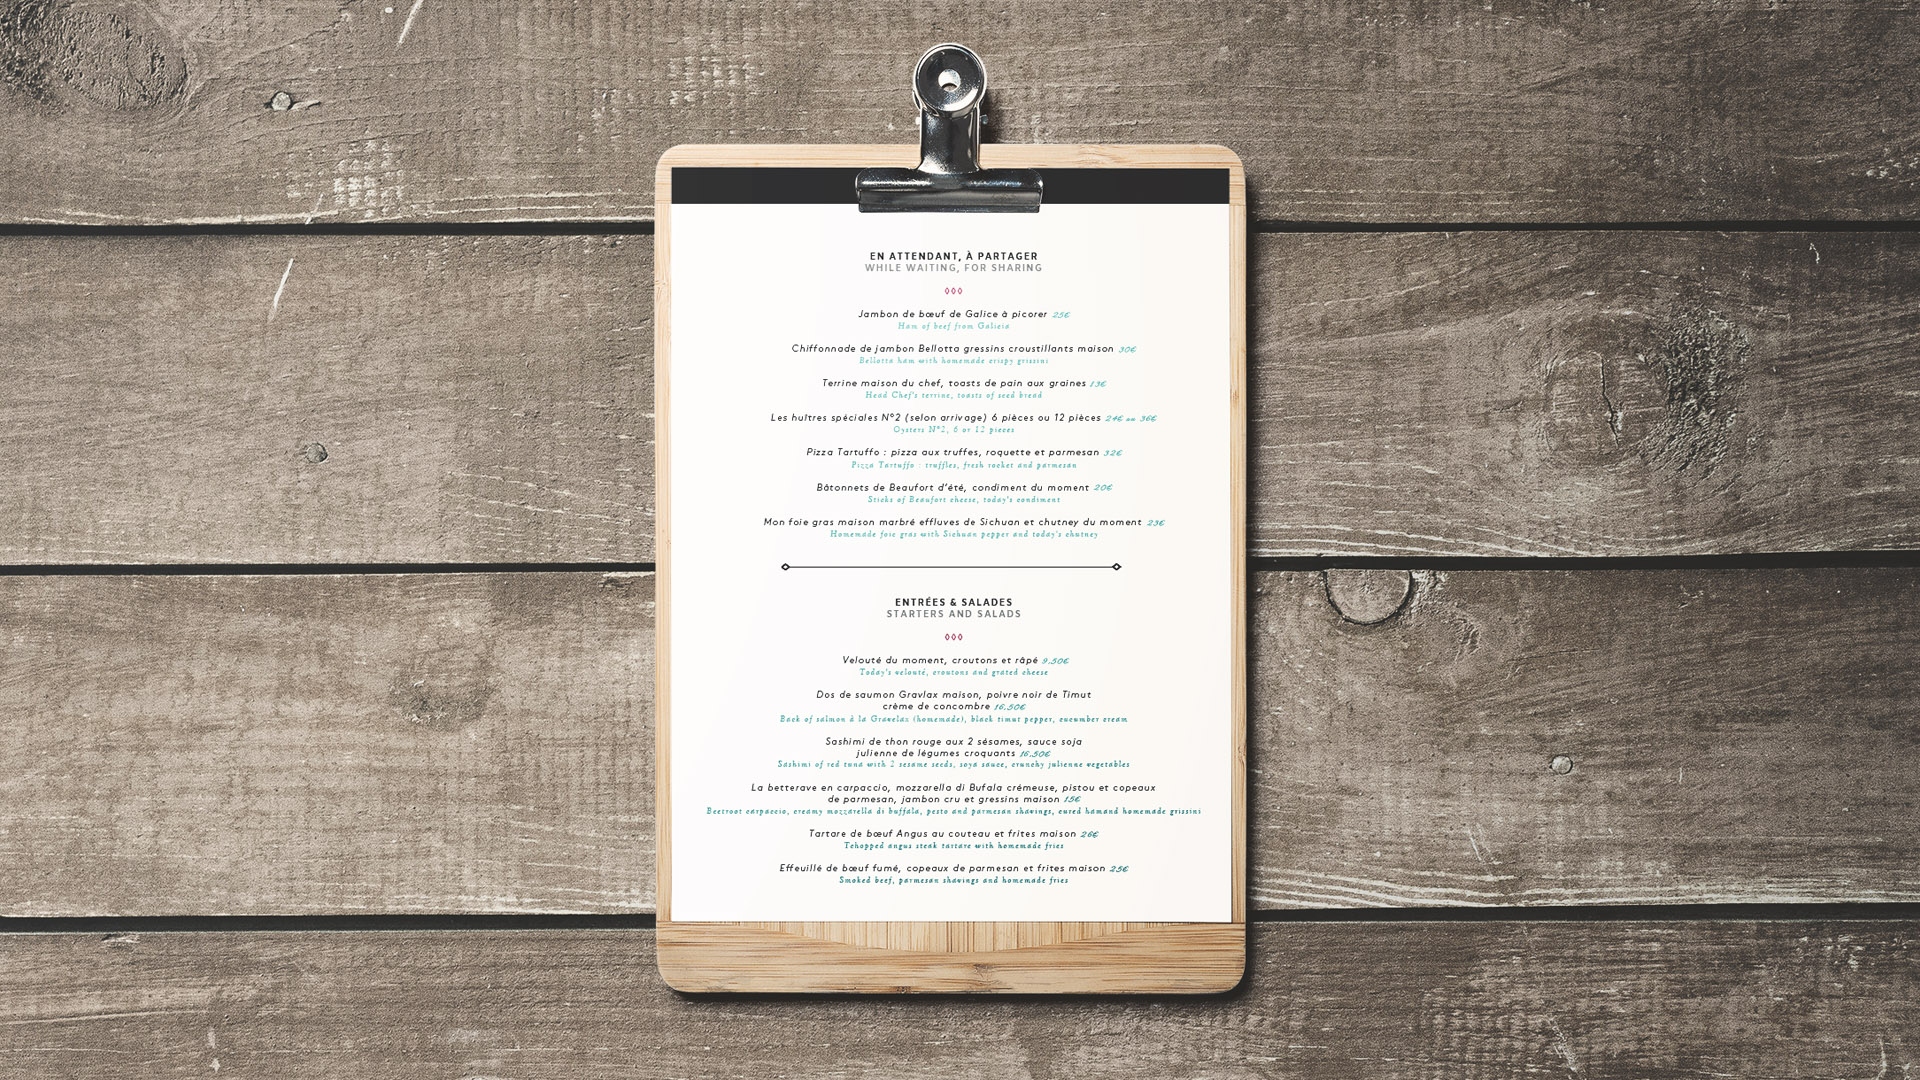 EN ATTENDANT, À PARTAGER
WHILE WAITING, FOR SHARING
Jambon de bœuf de Galice à picorer 25€
Ham of beef from Galicia
Chiffonnade de jambon Bellotta gressins croustillants maison 30€
Bellotta ham with homemade crispy grissini
Terrine maison du chef, toasts de pain aux graines 13€
Head Chef's terrine, toasts of seed bread
Les huîtres spéciales N°2 (selon arrivage) 6 pièces ou 12 pièces 24€ ou 36€
Oysters N°2, 6 or 12 pieces
Pizza Tartuffo : pizza aux truffes, roquette et parmesan 32€
Pizza Tartuffo : truffles, fresh rocket and parmesan
Bâtonnets de Beaufort d'été, condiment du moment 20€
Sticks of Beaufort cheese, today's condiment
Mon foie gras maison marbré effluves de Sichuan et chutney du moment 23€
Homemade foie gras with Sichuan pepper and today's chutney
ENTRÉES & SALADES
STARTERS AND SALADS
Velouté du moment, croutons et râpé 9.50€
Today's velouté, croutons and grated cheese
Dos de saumon Gravlax maison, poivre noir de Timut
crème de concombre 16.50€
Back of salmon à la Gravelax (homemade), black timut pepper, cucumber cream
Sashimi de thon rouge aux 2 sésames, sauce soja
julienne de légumes croquants 16.50€
Sashimi of red tuna with 2 sesame seeds, soya sauce, crunchy julienne vegetables
La betterave en carpaccio, mozzarella di Bufala crémeuse, pistou et copeaux
de parmesan, jambon cru et gressins maison 15€
Beetroot carpaccio, creamy mozzarella di buffala, pesto and parmesan shavings, cured hamand homemade grissini
Tartare de bœuf Angus au couteau et frites maison 26€
Tchopped angus steak tartare with homemade fries
Effeuillé de bœuf fumé, copeaux de parmesan et frites maison 25€
Smoked beef, parmesan shavings and homemade fries